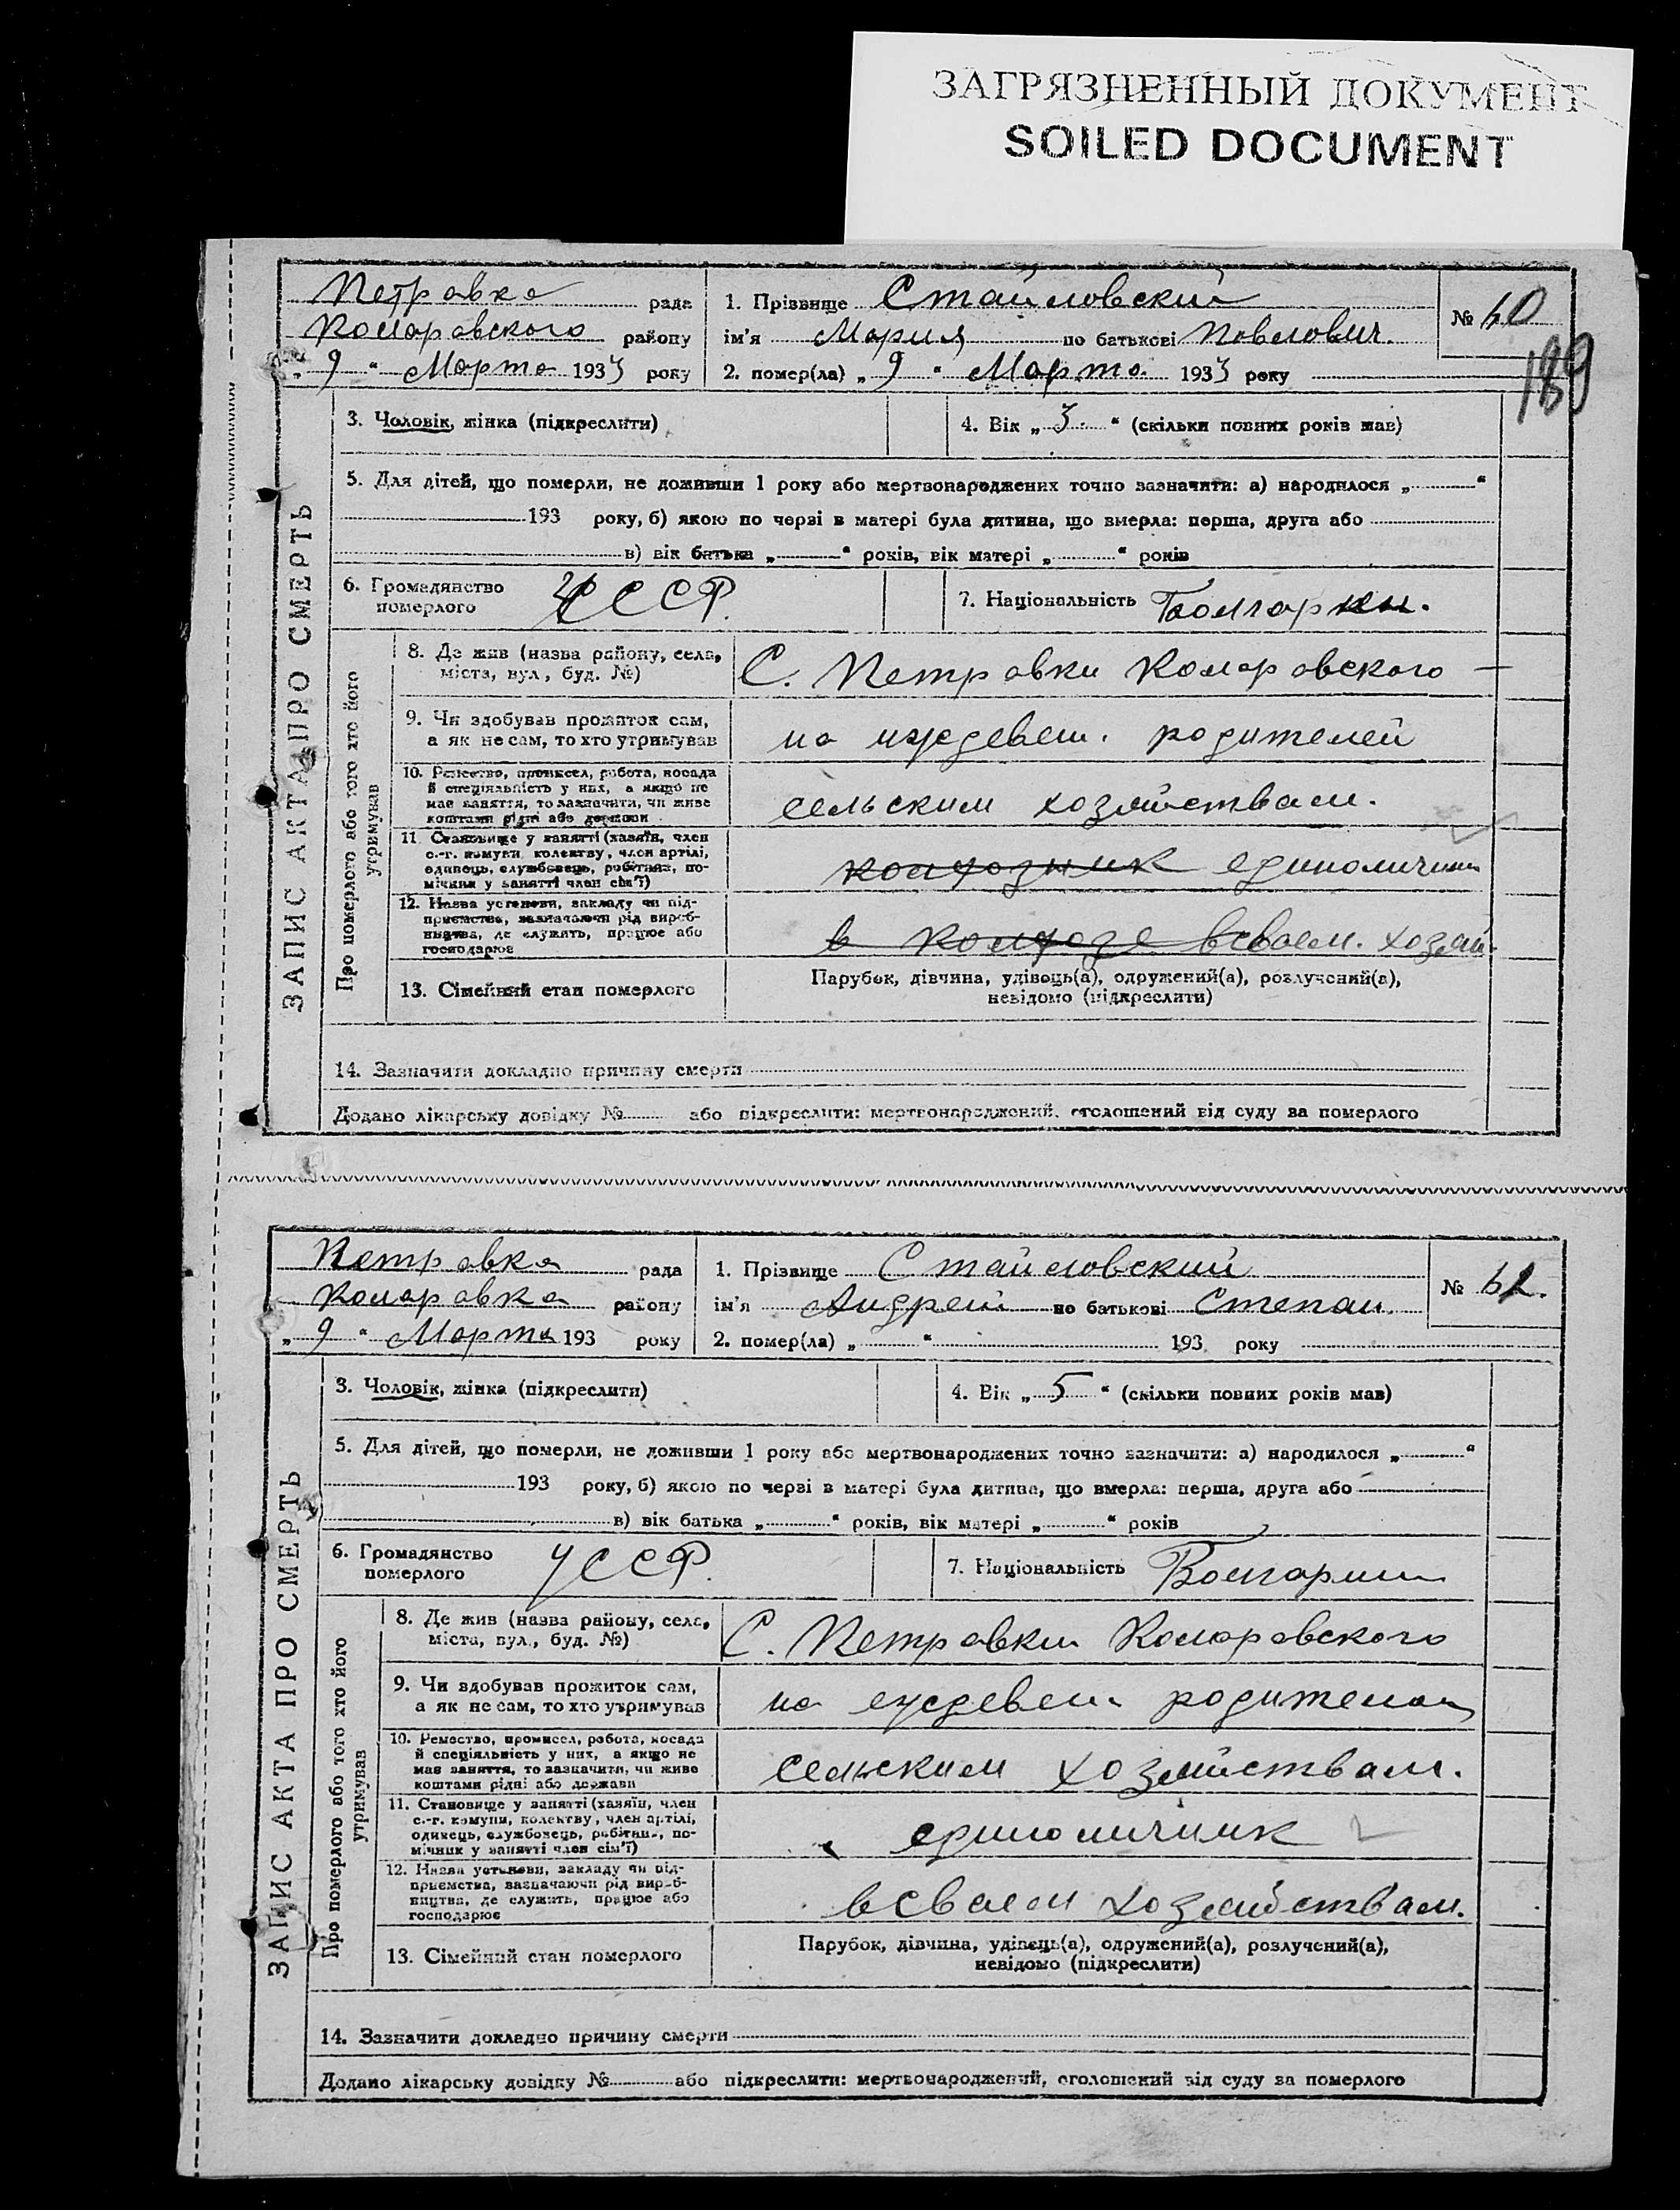 ЗАГРЯЗНЕННЫЙ ДОКУМЕНТ
SOILED DOCUMENT
Петравка рада
Коларовского району
„ 9 “ Марта 1933 року
1. Прізвище Стайловский
ім'я Мария по батькові Павлович.
2. помер(ла) „ 9 “ Марта 1933 року
№ 60
189
ЗАПИС АКТА ПРО СМЕРТЬ
3. Чоловік, жінка (підкреслити)
4. Вік „ 3. “ (скільки повних років мав)
5. Для дітей, що померли, не доживши 1 року або мертвонароджених точно зазначити: а) народилося „ “
193 року, б) якою по черзі в матері була дитина, що вмерла: перша, друга або
в) вік батька „ “ років, вік матері „ “ років
6. Громадянство
померлого
УССР.
7. Національність
Про померлого або того хто його
утримував
8. Де жив (назва району, села,
міста, вул., буд. №)
С. Петравки Коларовского
9. Чи здобував прожиток сам,
а як не сам, то хто утримував
на иждевен. родителей
10. Ремество, промисел, робота, посада
й спеціяльність у них, а якщо не
має заняття, то зазначити, чи живе
коштами рідні або держави
сельским хозяйствам.
11. Становище у занятті (хазяїн, член
с.-г. комуни, колективу, член артілі,
одинець, службовець, робітник, по-
мічник у занятті член сім'ї)
колхозник единоличник
12. Назва установи, закладу чи під-
приємства, зазначаючи рід вироб-
ництва, де служить, працює або
господарює
в колхозе всваем. хозяй.
13. Сімейний стан померлого
Парубок, дівчина, удівець(а), одружений(а), розлучений(а),
невідомо (підкреслити)
14. Зазначити докладно причину смерти
Додано лікарську довідку № або підкреслити: мертвонароджений, оголошений від суду за померлого
Петравка рада
Коларавка району
„ 9 “ Марта 193 року
1. Прізвище Стайловский
ім'я Андрей по батькові Степан.
2. помер(ла) „ “ 193 року
№
ЗАПИС АКТА ПРО СМЕРТЬ
3. Чоловік, жінка (підкреслити)
4. Вік „ 5 “ (скільки повних років мав)
5. Для дітей, що померли, не доживши 1 року або мертвонароджених точно зазначити: а) народилося „ “
193 року, б) якою по черзі в матері була дитина, що вмерла: перша, друга або
в) вік батька „ “ років, вік матері „ “ років
6. Громадянство
померлого
УССР.
7. Національність Болгарин
Про померлого або того хто його
утримував
8. Де жив (назва району, села,
міста, вул., буд. №)
С. Петравки Коларовского
9. Чи здобував прожиток сам,
а як не сам, то хто утримував
на ежедевен родителей
10. Ремество, промисел, робота, посада
й спеціяльність у них, а якщо не
має заняття, то зазначити, чи живе
коштами рідні або держави
сельским хозяйствам.
11. Становище у занятті (хазяїн, член
с.-г. комуни, колективу, член артілі,
одинець, службовець, робітник, по-
мічник у занятті член сім'ї)
единоличник
12. Назва установи, закладу чи під-
приємства, зазначаючи рід вироб-
ництва, де служить, працює або
господарює
всваем хозяйствам.
13. Сімейний стан померлого
Парубок, дівчина, удівець(а), одружений(а), розлучений(а),
невідомо (підкреслити)
14. Зазначити докладно причину смерти
Додано лікарську довідку № або підкреслити: мертвонароджений, оголошений від суду за померлого